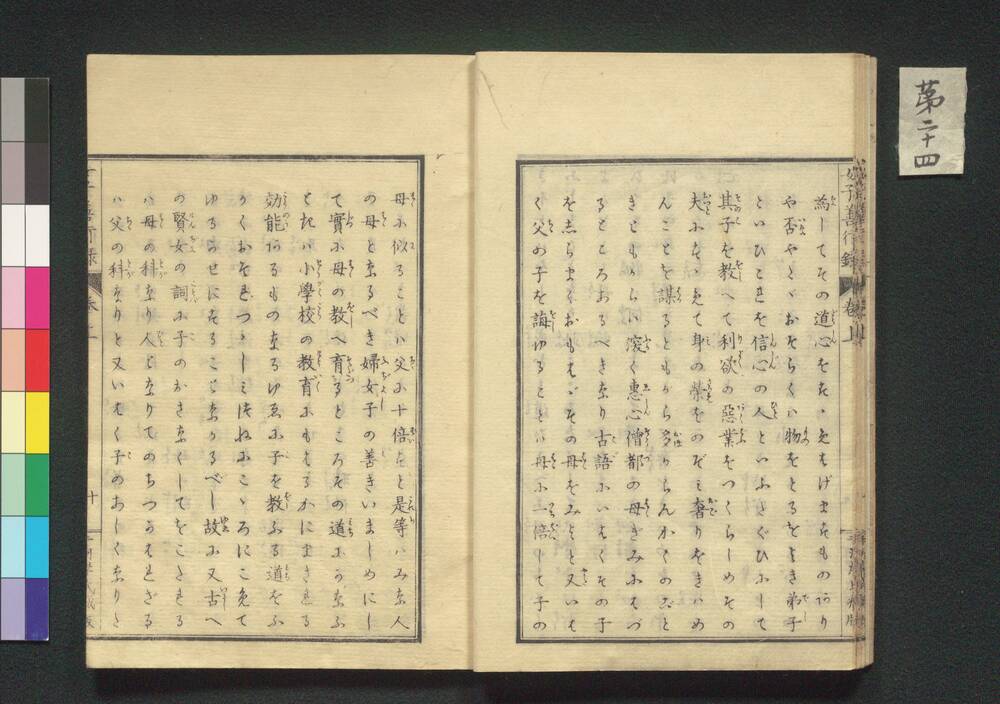 第二十四
為してその道心をたゝえはげますものあり
や否やとゝおそらくハ物をとるをよき弟子
といひこれを信心の人といふたぐひにして
其子を教へて利欲の惡業をつくらしめその
夫にすゝめて身の榮をのぞミ奢りをきハめ
んことを謀るともから多からんかくのごと
きともからハ深く惠心僧都の母ぎみにはづ
るところあるべきなり古語にいはくその子
をしらまくおもはゞその母をみよと又いはく
く父の子を誨ゆるよりハ母に一倍して子の
母に似ることハ父に十倍すと是等ハみな人
の母となるべき婦女子の善きいましめにし
て實に母の教へ育るところその道にかなふ
ときハ小學校の教育にもはるかにまされる
効能あるものなるゆゑに子を教ふる道をふ
かくおそれつゝしミつねにこゝろにこめて
ゆるかせにすることなかるべし故に又古へ
の賢女の詞に子のおさなくしてをこたれる
ハ母の科なり人となりてのちつかはれざる
ハ父の科なりと又いはく子のあしくなりと
善行録
卷上
十